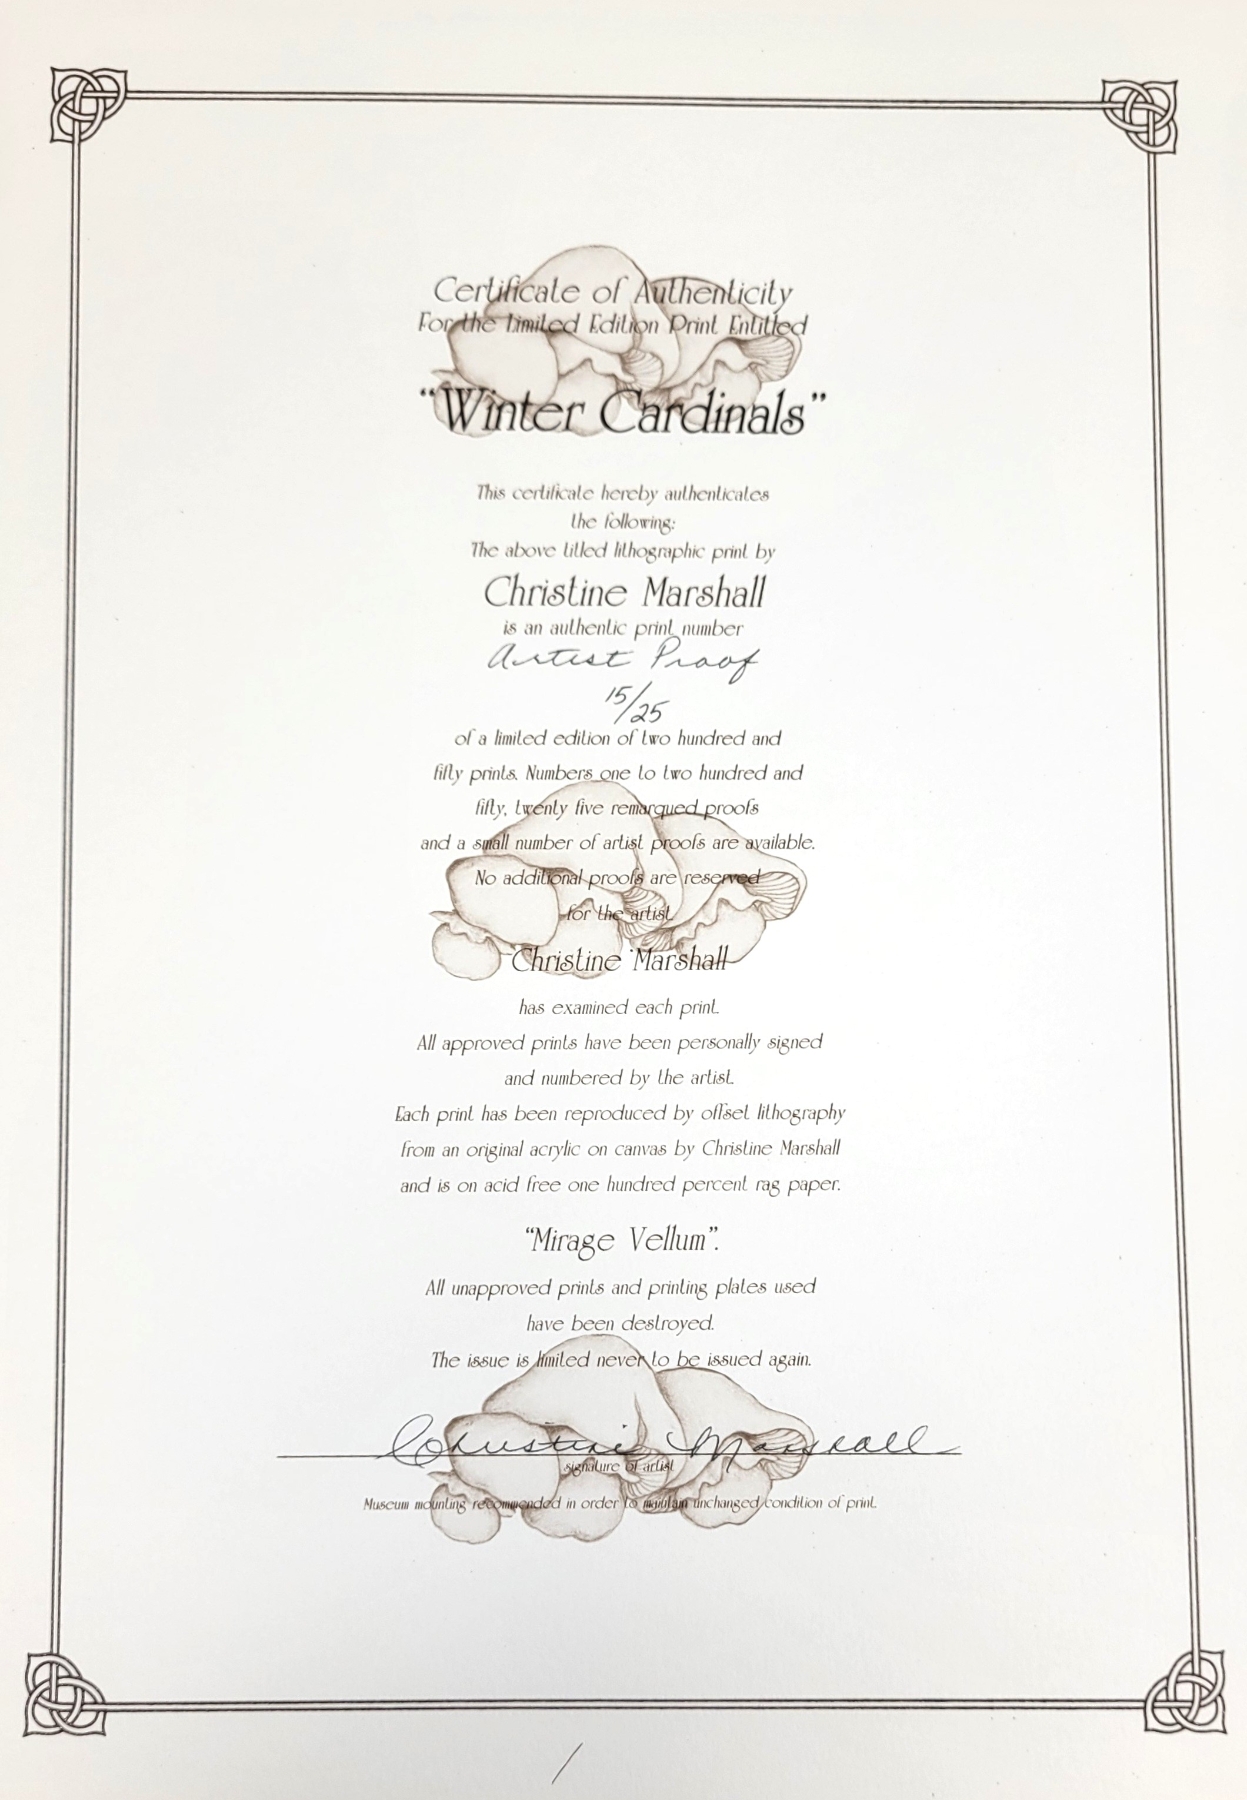 Certificate of Authenticity
For the Limited Edition Print Entitled
“Winter Cardinals”
This certificate hereby authenticates
the following:
The above titled lithographic print by
Christine Marshall
is an authentic print number
Artist Proof
15/25
of a limited edition of two hundred and
fifty prints. Numbers one to two hundred and
fifty, twenty five remarqued proofs
and a small number of artist proofs are available.
No additional proofs are reserved
for the artist.
Christine Marshall
has examined each print.
All approved prints have been personally signed
and numbered by the artist.
Each print has been reproduced by offset lithography
from an original acrylic on canvas by Christine Marshall
and is on acid free one hundred percent rag paper.
“Mirage Vellum”.
All unapproved prints and printing plates used
have been destroyed.
The issue is limited never to be issued again.
Christine Marshall
signature of artist
Museum mounting recommended in order to maintain unchanged condition of print.